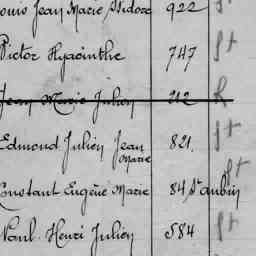 Louis Jean Marie Isidore 922 St
Victor Hyacinthe 747 St
Jean Marie Julien 212 R
Edmond Julien Jean 821. St
Marie
St
Constant Eugène Marie 84 St aubin
Paul Henri Julien 584 St